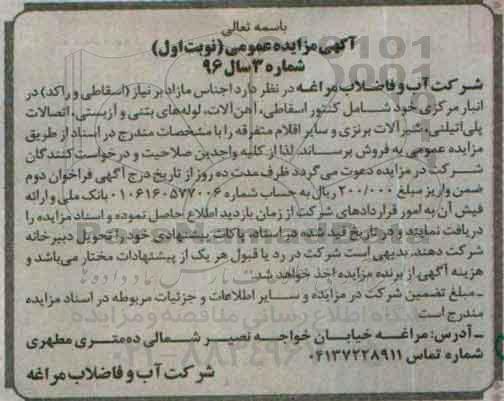 باسمه تعالی
آگهی مزایده عمومی (نوبت اول)
شماره ۳ سال ۹۶
شرکت آب و فاضلاب مراغه در نظر دارد اجناس مازاد بر نیاز (اسقاطی و راکد) در
انبار مرکزی خود شامل کنتور اسقاطی، آهن آلات، لوله‌های بتنی و آزبستی، اتصالات
پلی‌اتیلنی، شیرآلات برنزی و سایر اقلام متفرقه را با مشخصات مندرج در اسناد از طریق
مزایده عمومی به فروش برساند. لذا از کلیه واجدین صلاحیت و درخواست‌کنندگان
شرکت در مزایده دعوت می‌گردد ظرف مدت ده روز از تاریخ درج آگهی فراخوان دوم
ضمن واریز مبلغ ۲۰۰/۰۰۰ ریال به حساب شماره ۰۱۰۶۱۶۰۵۷۷۰۰۶ بانک ملی و ارائه
فیش آن به امور قراردادهای شرکت از زمان بازدید اطلاع حاصل نموده و اسناد مزایده را
دریافت نمایند و در تاریخ قید شده در اسناد، پاکات پیشنهادی خود را تحویل دبیرخانه
شرکت دهند. بدیهی است شرکت در رد یا قبول هر یک از پیشنهادات مختار می‌باشد و
هزینه آگهی از برنده مزایده اخذ خواهد شد.
ـ مبلغ تضمین شرکت در مزایده و سایر اطلاعات و جزئیات مربوطه در اسناد مزایده
مندرج است.
ـ آدرس: مراغه خیابان خواجه نصیر شمالی ده‌متری مطهری
شماره تماس ۰۴۱۳۷۲۲۸۹۱۱
شرکت آب و فاضلاب مراغه